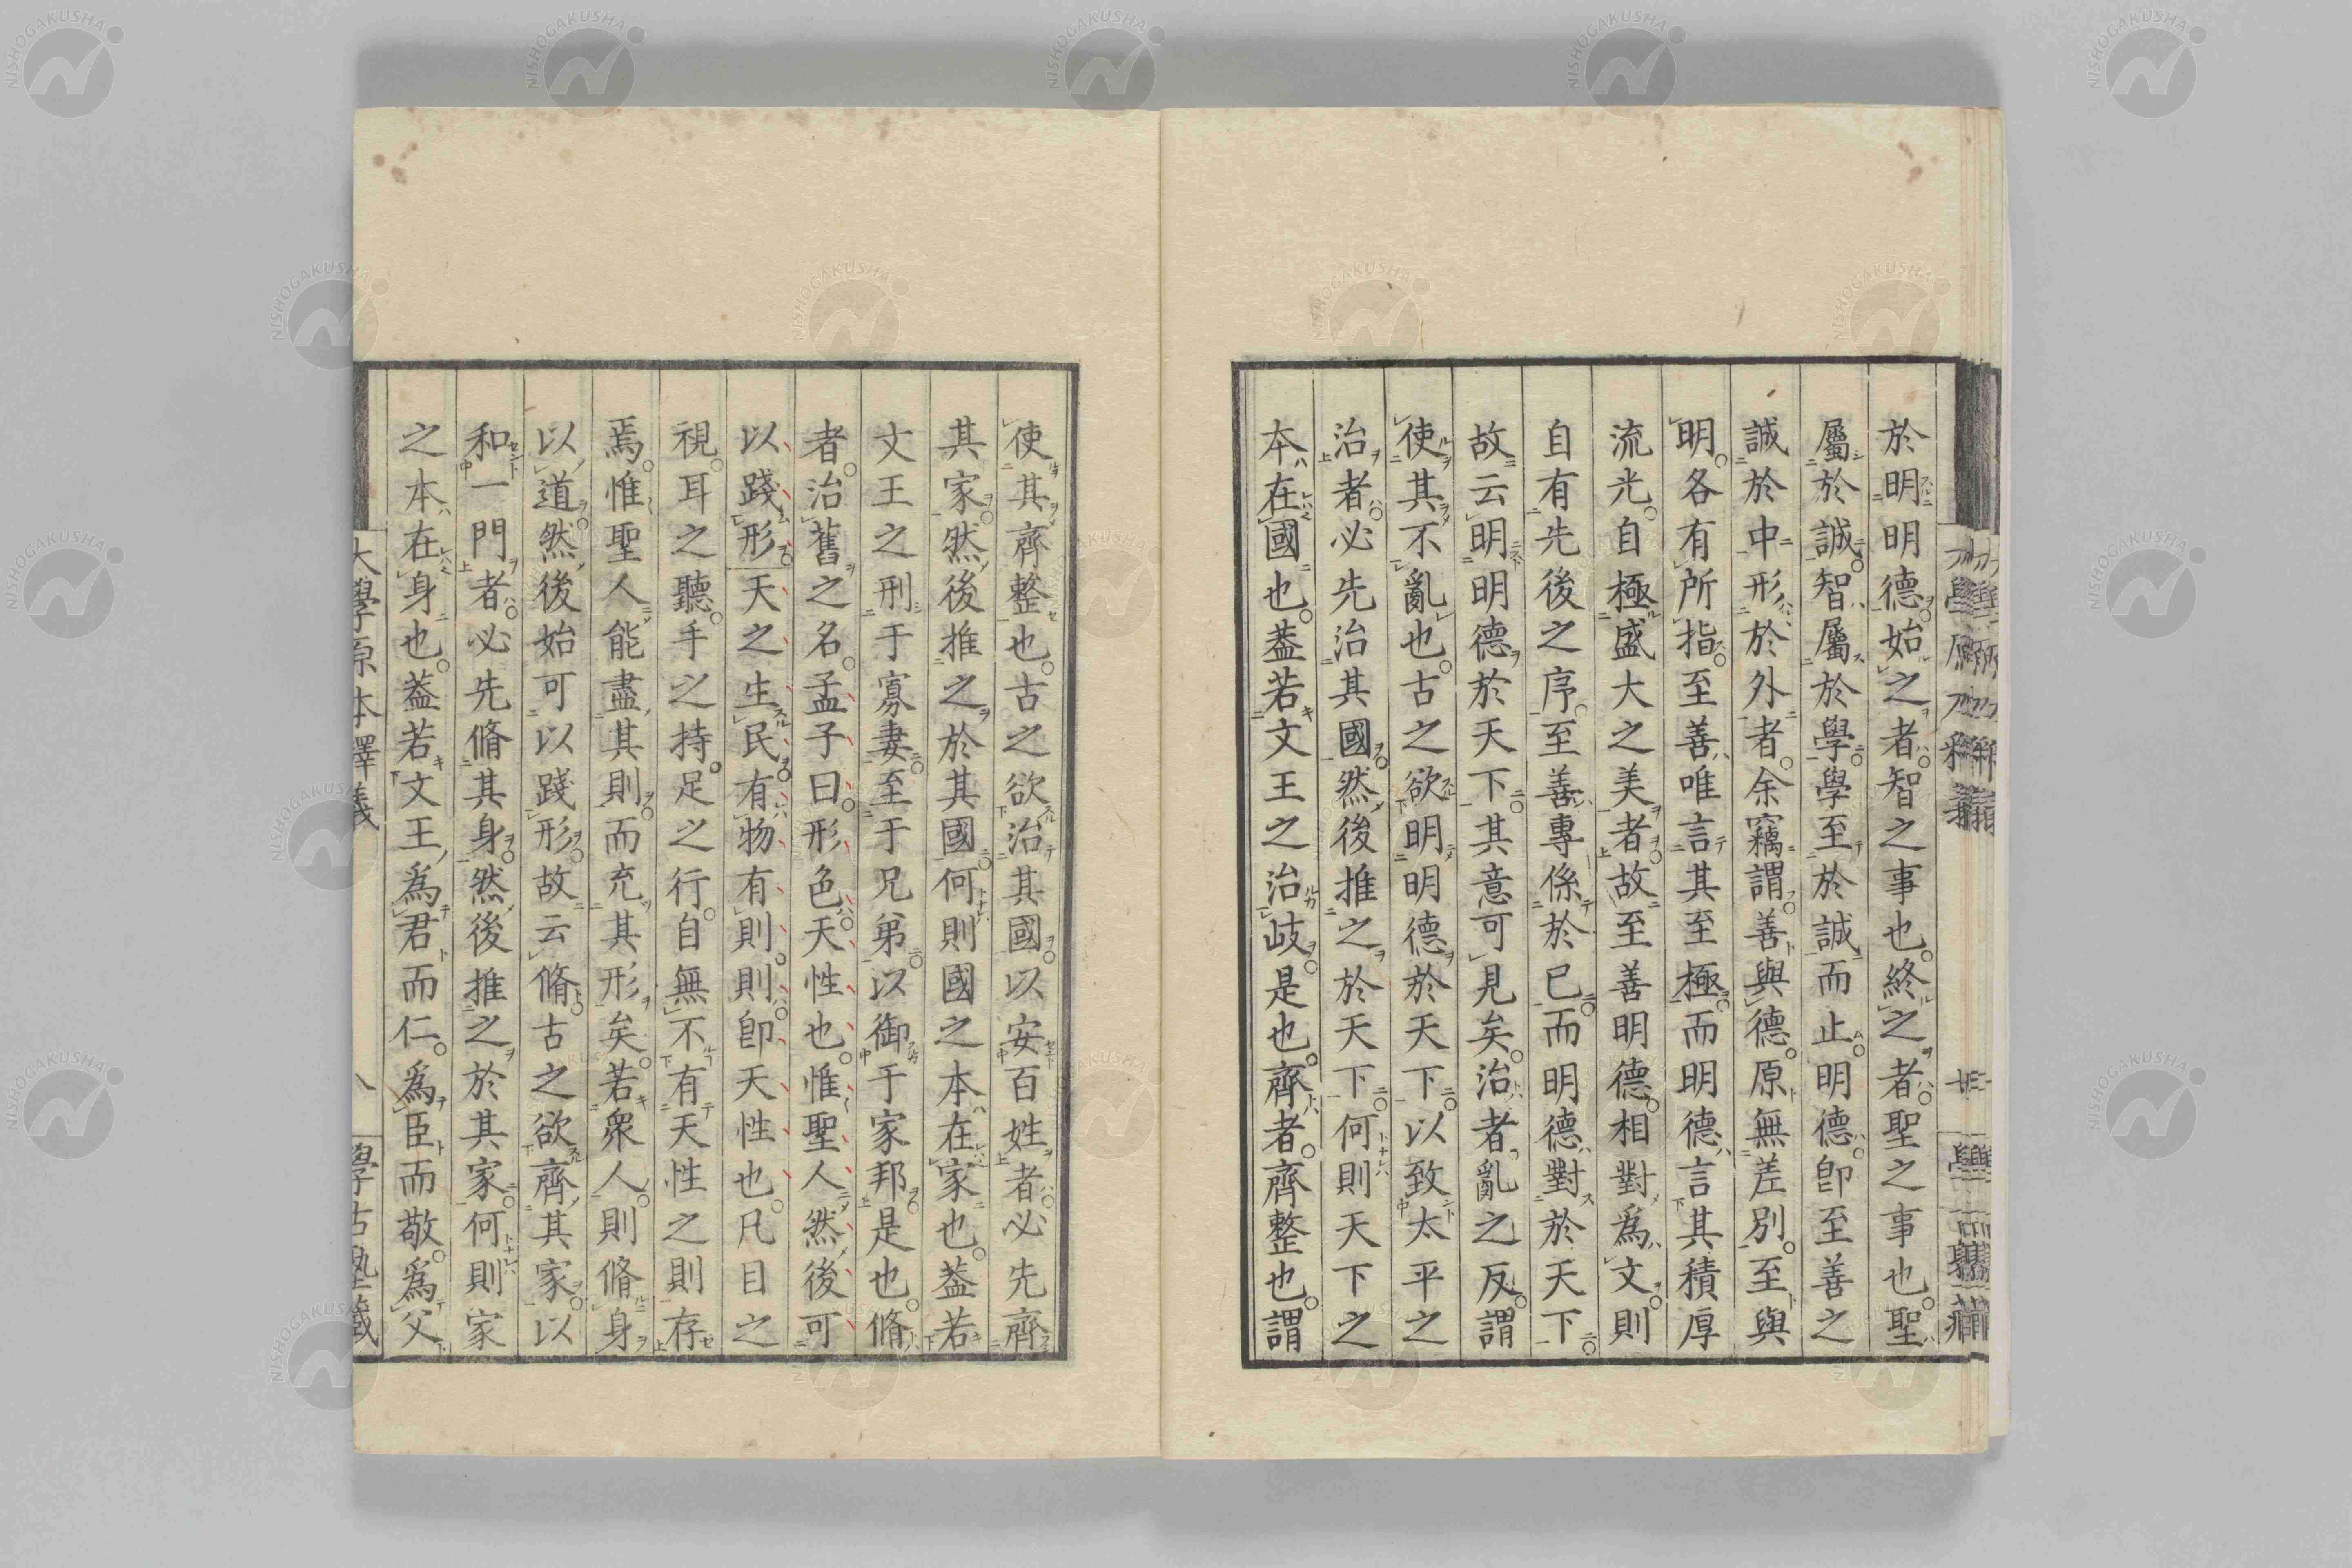 於明明德始之者智之事也終之者聖之事也聖
屬於誠智屬於學學至於誠而止明德卽至善之
誠於中形於外者余竊謂善與德原無差別至與
明各有所指至善唯言其至極而明德言其積厚
流光自極盛大之美者故至善明德相對爲文則
自有先後之序至善專係於已而明德對於天下
故云明明德於天下其意可見矣治者亂之反謂
使其不亂也古之欲明明德於天下以致太平之
治者必先治其國然後推之於天下何則天下之
本在國也蓋若文王之治岐是也齊者齊整也謂
使其齊整也古之欲治其國以安百姓者必先齊
其家然後推之於其國何則國之本在家也蓋若
文王之刑于寡妻至于兄弟以御于家邦是也脩
者治舊之名孟子曰形色天性也惟聖人然後可
以踐形天之生民有物有則則卽天性也凡目之
視耳之聽手之持足之行自無不有天性之則存
焉惟聖人能盡其則而充其形矣若衆人則脩身
以道然後始可以踐形故云脩古之欲齊其家以
和一門者必先脩其身然後推之於其家何則家
之本在身也蓋若文王爲君而仁爲臣而敬爲父
大學原本釋義
八
學古塾藏
NISHOGAKUSHA